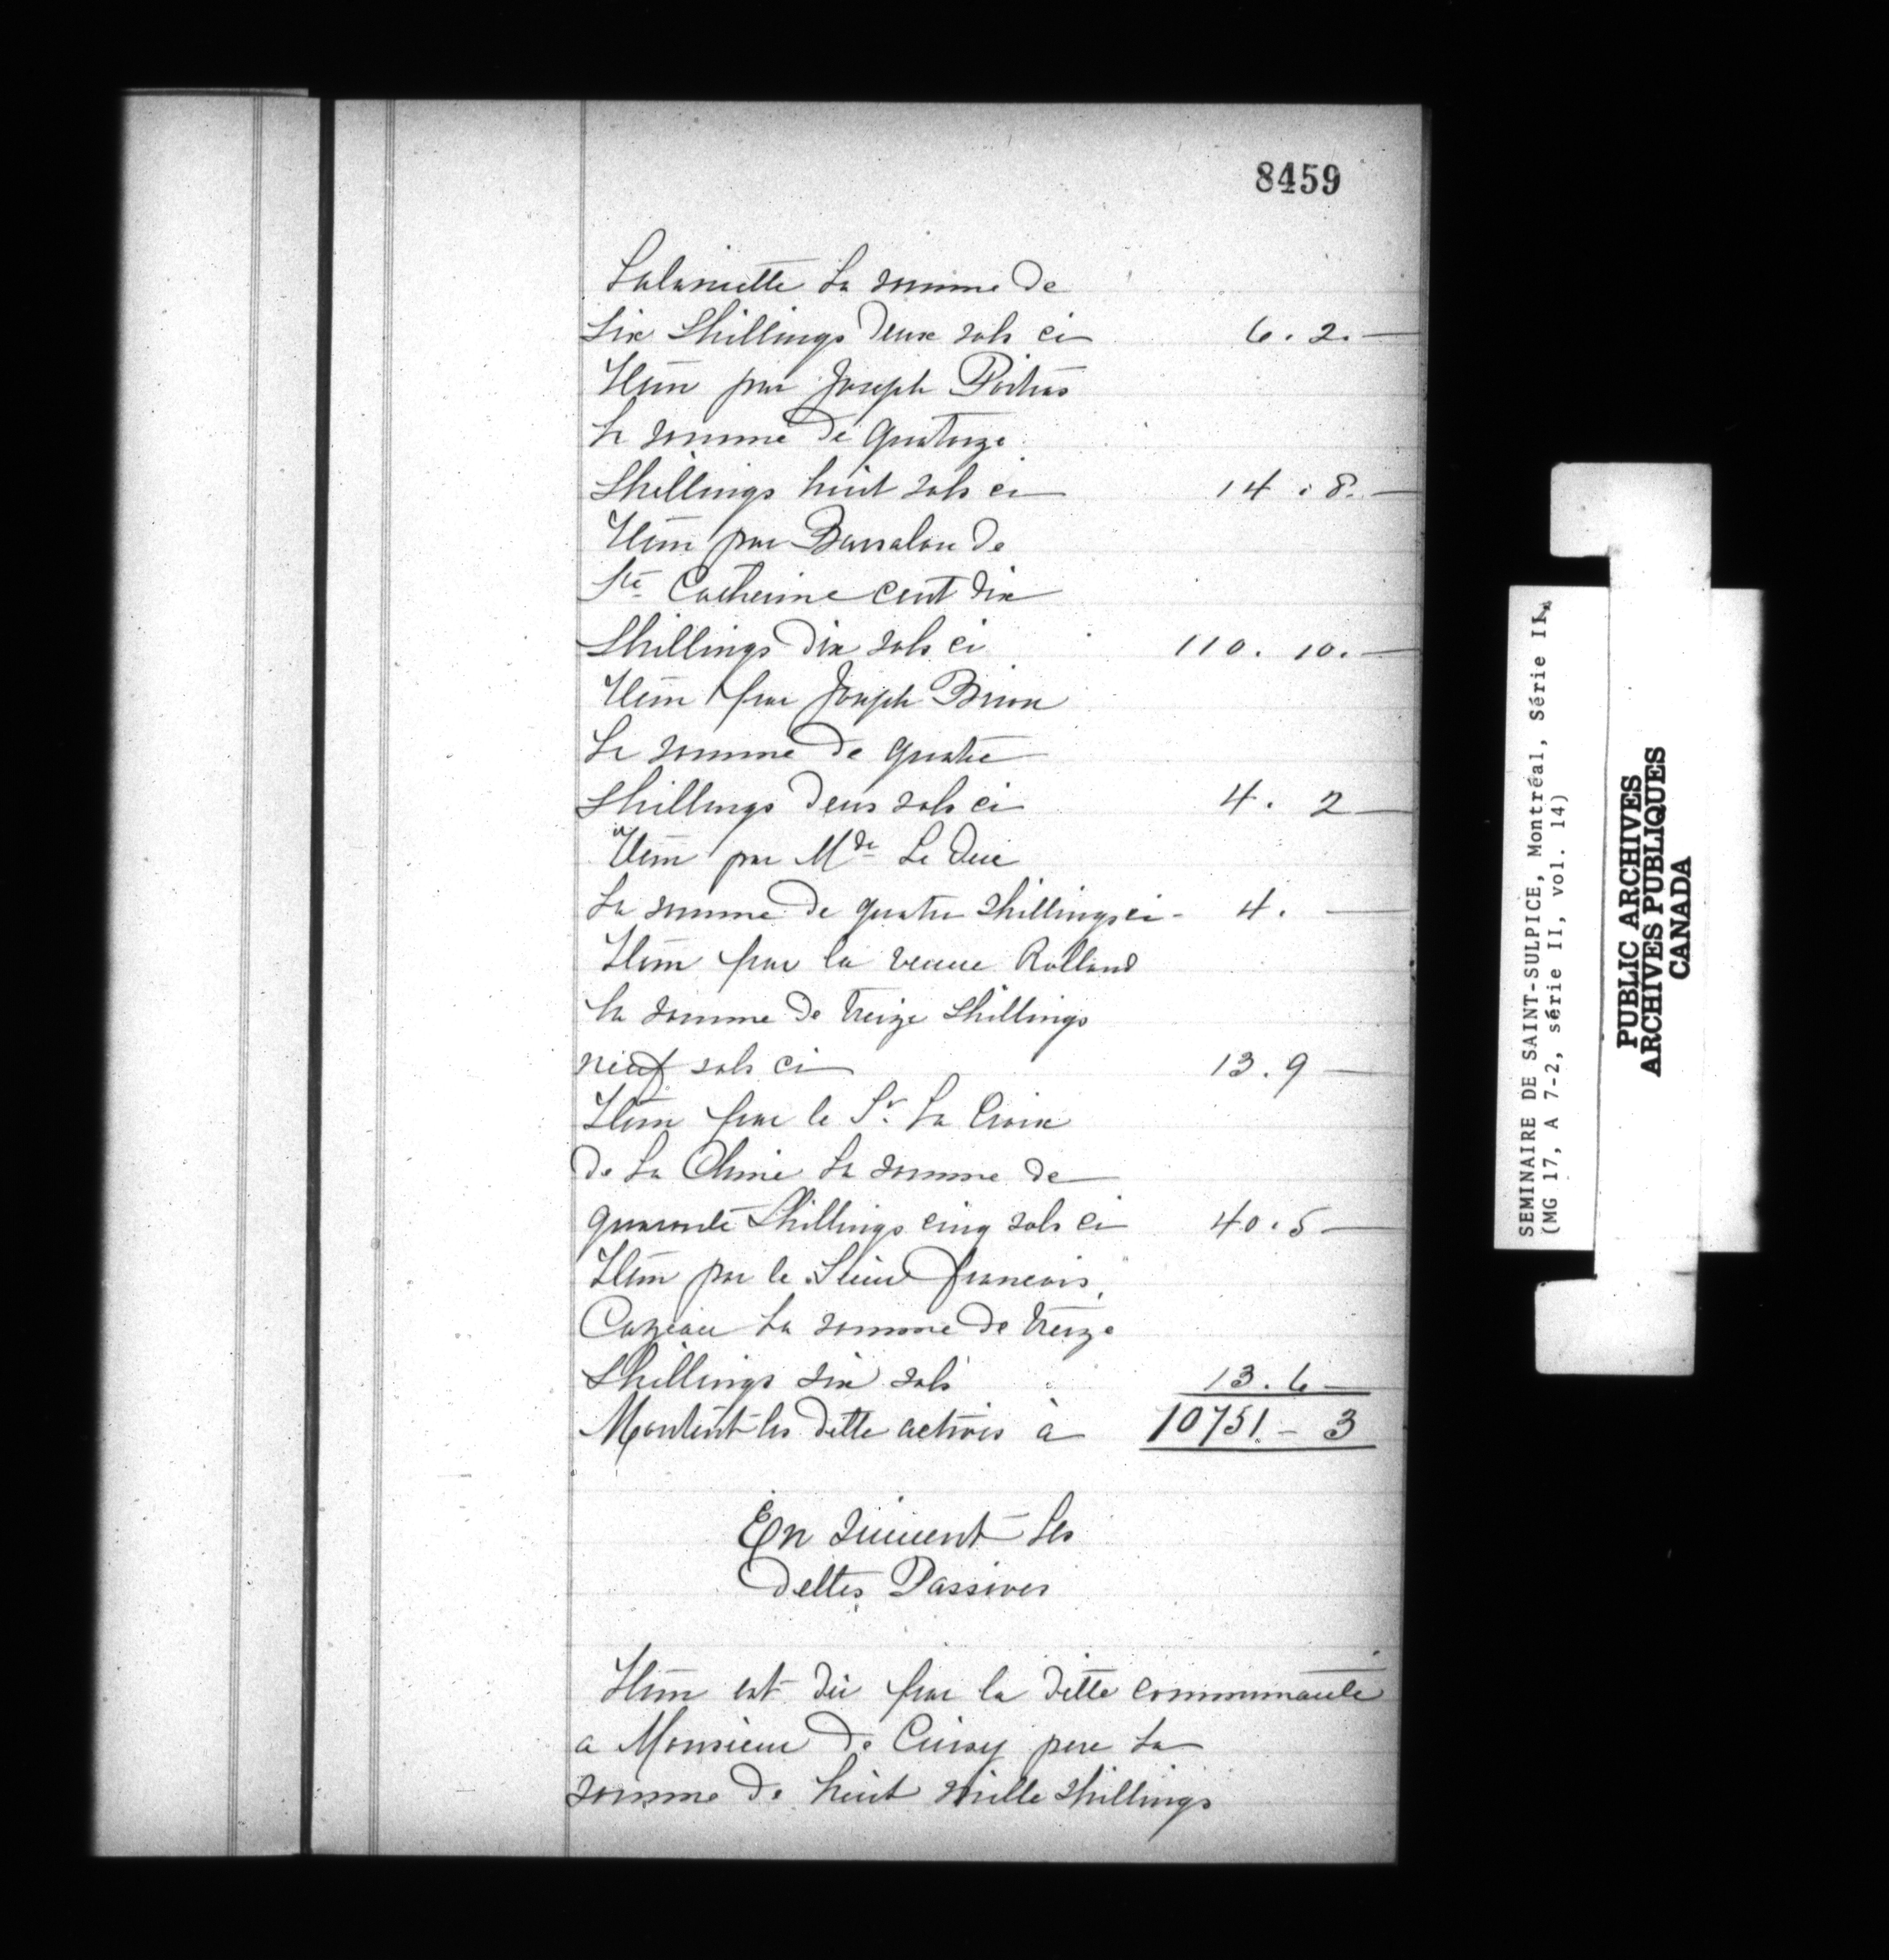 8459
Lalancette La somme de
Six Shillings deux sols ci 6. 2. —
Item par Joseph Poitras
La somme de quatorze
Shillings huit sols ci 14. 8. —
Item par Barsalou de
Ste Catherine cent dix
Shillings dix sols ci 110. 10. —
Item par Joseph Brion
La somme de quatre
Shillings deux sols ci 4. 2 —
Item par Mde Le Duc
La somme de quatre shillings ci - 4. —
Item par la veuve Rolland
La somme de treize Shillings
neuf sols ci 13. 9 —
Item par le Sr. La Croix
de La Chine La somme de
quarante Shillings cinq sols ci 40. 5 —
Item par le Sieur francois
Cazeau La somme de treize
Shillings six sols 13. 6 —
Montent les dette actives à 10751. - 3
En suivent Les
Dettes Passives
Item est dû par la ditte communauté
a Monsieur de pere La
somme de huit mille shillings
SEMINAIRE DE SAINT-SULPICE, Montréal, Série II,
(MG 17, A 7-2, série II, vol. 14)
PUBLIC ARCHIVES
ARCHIVES PUBLIQUES
CANADA